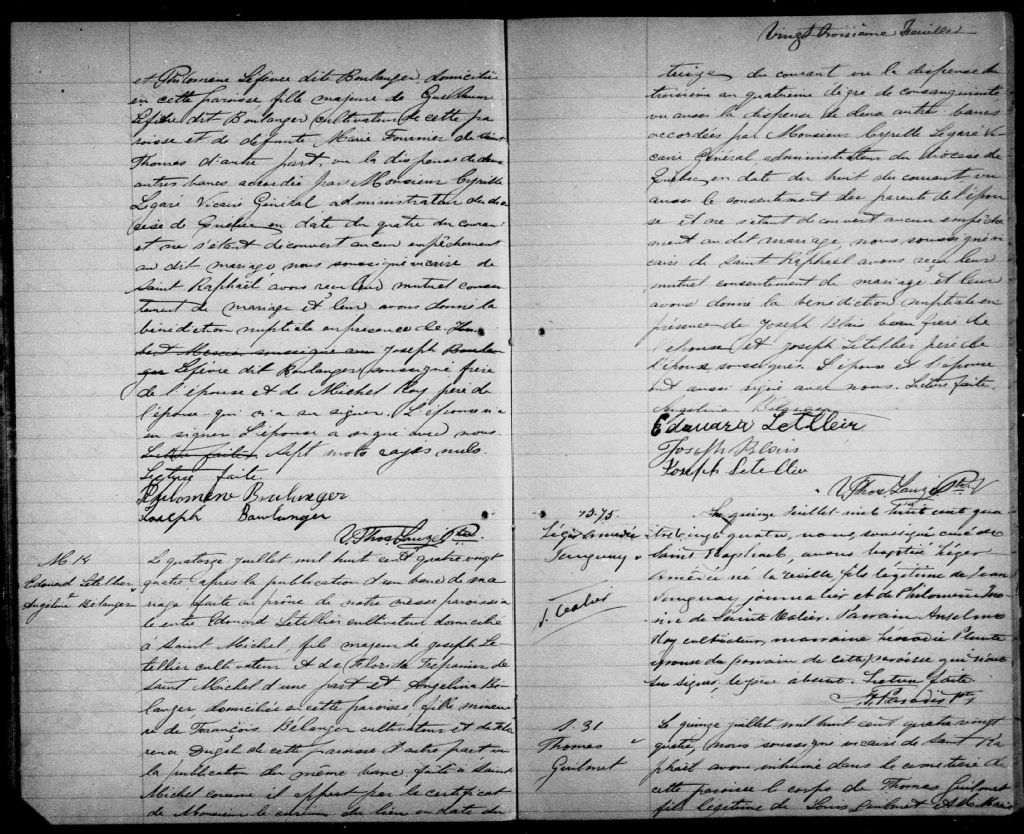 et Philomene Lefèvre dite Boulanger domiciliée
en cette paroisse fille majeure de Guillaume
Lefèvre dit Boulanger cultivateur de cette pa
roisse et de défunte Marie Fournier de Saint
Thomas d'autre part, vu la dispense de deux
autres bancs accordée par Monsieur Cyrille
Légaré Vicaire Général administrateur du dio
cèse de Québec en date du quatre du courant
et ne s'étant découvert aucun empêchement
au dit mariage nous soussigné vicaire de
Saint Raphaël avons reçu leur mutuel consen
tement de mariage et leur avons donné la
bénédiction nuptiale en présence de
soussigné Joseph Boulan
ger Lefèvre dit Boulanger soussigné frère
de l'épouse et de Michel Roy père de
l'époux qui n'a su signer. L'époux n'a
su signer L'épouse a signé avec nous.
Lecture faite. Sept mots rayés nuls.
Lecture faite.
Philomène Boulanger
Joseph Boulanger
V. Thos Lauzé Ptre
M 14
Edouard Letellier
&
Angelina Bélanger
Le quatorze juillet mil huit cent quatre vingt
quatre, après la publication d'un banc de ma
riage faite au prône de notre messe paroissia
le entre Edouard Letellier cultivateur domicilié
à Saint Michel, fils majeur de Joseph Le
tellier cultivateur et de Florida Trépanier de
Saint Michel d'une part et Angelina Bé
langer domiciliée en cette paroisse fille mineu
re de François Bélanger cultivateur et de
Dugal de cette paroisse d'autre part vu
la publication du même banc faite à Saint
Michel comme il appert par le certificat
de Monsieur le curé du lieu en date du
Vingt troisième Feuillet
treize du courant vu la dispense du
troisième au quatrième degré de consanguinité
vu aussi la dispense de deux autres bancs
accordées par Monsieur Cyrille Légaré Vi
caire Général administrateur du diocèse de
Québec en date du huit du courant vu
aussi le consentement des parents de l'épou
se et ne s'étant découvert aucun empêche
ment au dit mariage, nous soussigné vi
caire de Saint Raphaël avons reçu leur
mutuel consentement de mariage et leur
avons donné la bénédiction nuptiale en
présence de Joseph Blais beau frère de
l'épouse et Joseph Letellier père de
l'époux soussignés. L'époux et l'épouse
ont aussi signé avec nous. Lecture faite.
Angelina Bélanger
Edouard Letelleir
Joseph Blais
Joseph Letellier
V. Thos Lauzé Ptre V
B. 75.
Léger
Tanguay
Le quinze Juillet mil huit cent qua
tre vingt quatre, nous, soussigné curé de
Saint Raphaël, avons baptisé Léger
né la veille, fils légitime de Jean
Tanguay journalier et de Philomène
de Sainte Valier. Parrain Anselme
Roy cultivateur, marraine Plante
épouse du parrain de cette paroisse qui n'ont
su signer, le père absent. Lecture faite
N. Paradis Ptre
S. 31
Thomas
Guilmet
Le quinze juillet mil huit cent quatre vingt
quatre, nous soussigné vicaire de Saint Ra
phaël avons inhumé dans le cimetière de
cette paroisse le corps de Thomas Guilmet
fils légitime de Louis Guilmet et de Marie